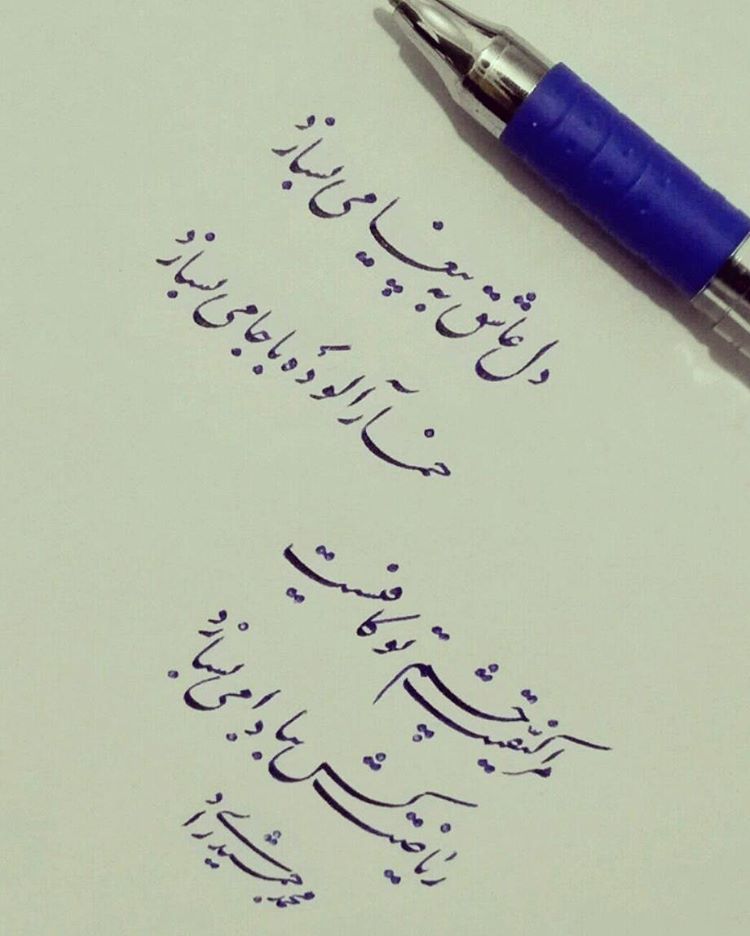 دل عاشق به پیغامی بسازد
خمارآلوده با جامی بسازد
مرا کیفیت چشم تو کافیست
ریاضت کش ببادامی بسازد
محمد جمشیدی راد